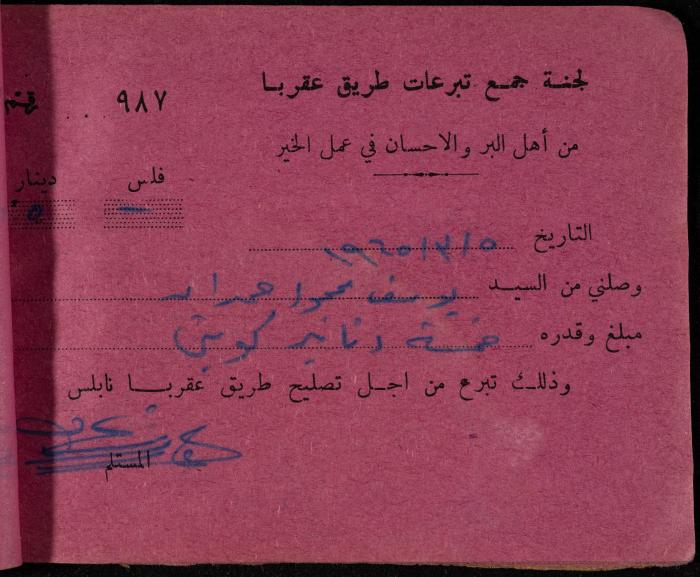 لجنة جمع تبرعات طريق عقربا
٩٨٧
من أهل البر والاحسان في عمل الخير
فلس دينار
٥
التاريخ ٥/٣/١٩٦٥
وصلني من السيد يوسف محمود حمدان
مبلغ وقدره خمسة دنانير كويتي
وذلك تبرع من اجل تصليح طريق عقربا نابلس
المستلم